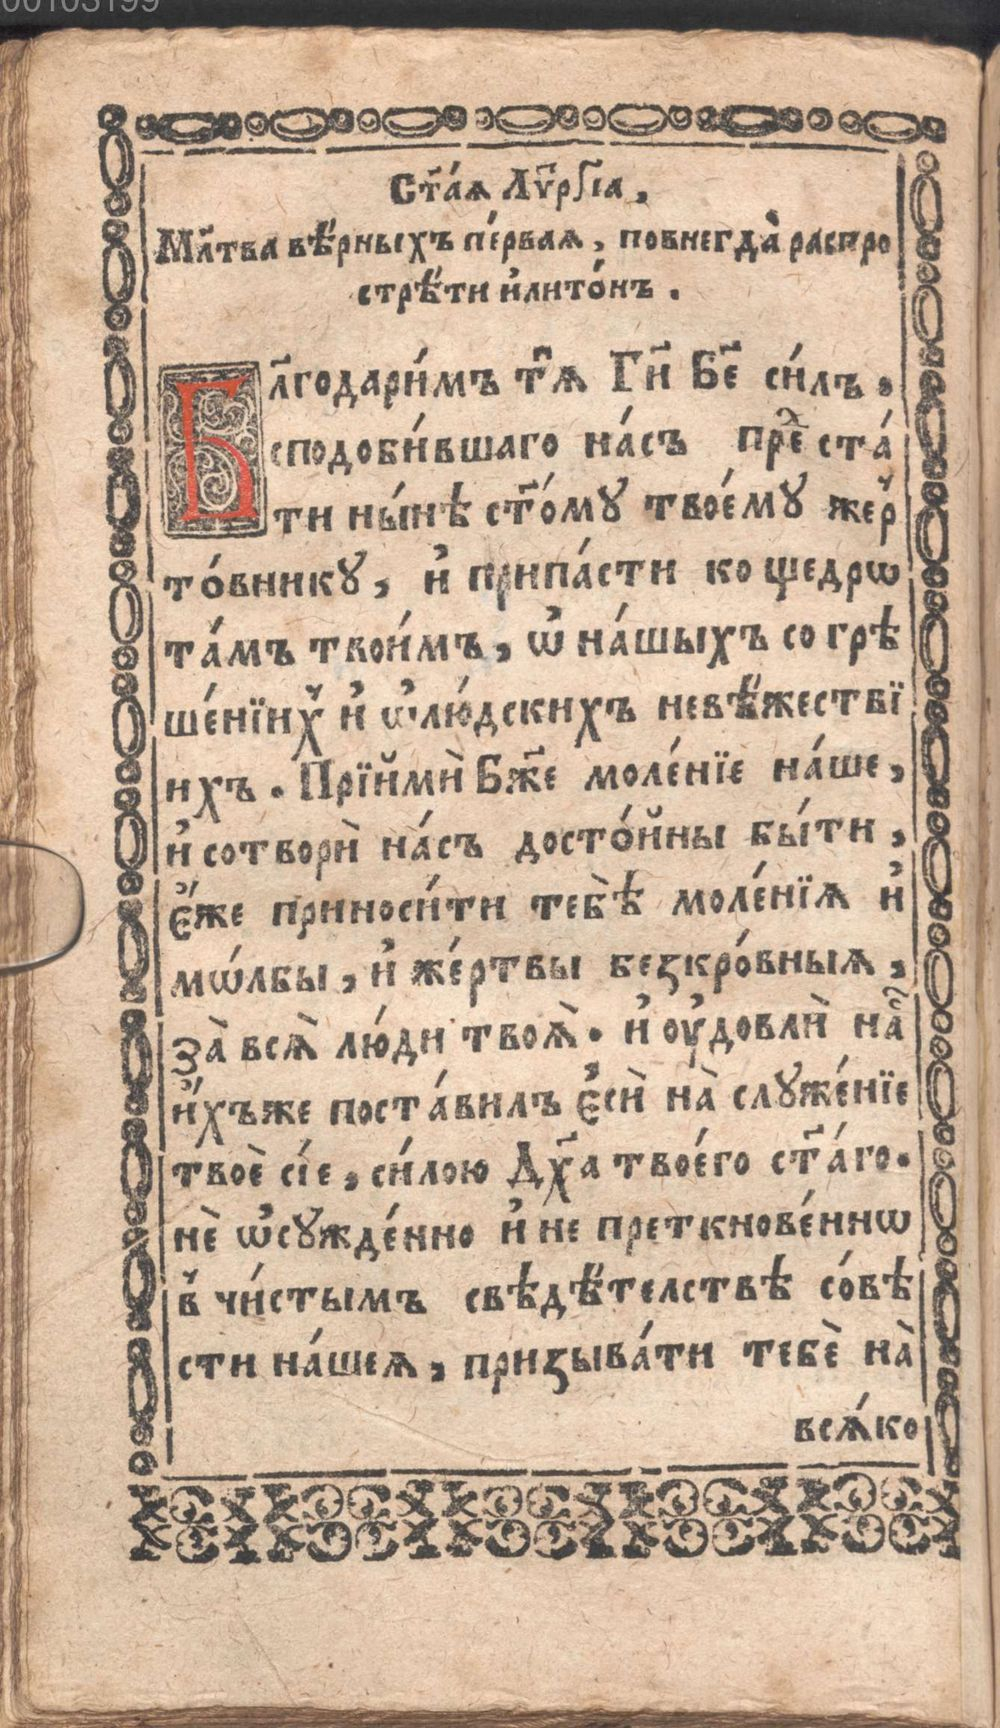 00103199
Ст҃а́ѧ Лѵ҃рг҇їа,
Мл҃тва вѣ́рныхъ пе́рваѧ, повнегда̀ распро
стрѣ́ти и҆лито́нъ.
Бл҃годари́мъ тѧ̀ Гн҃ Бе҃ си́лъ,
сподоби́вшаго на́съ пре́ⷣ ста́
ти ны́нѣ ст҃о́мꙋ твое́мꙋ же́р
то́вникꙋ, и҆ припа́сти ко щедрѡ
та́мъ твои́мъ, ѡ҆ на́шыхъ согрѣ
ше́нїихⷯ и҆ ѡ҆лю́дскихъ невѣ́жествї
ихъ. Прїимѝ Бж҃е моле́нїе на́ше,
и҆ сотворѝ на́съ досто́йны бы́ти,
є҆́же приноси́ти тебѣ̀ моле́нїѧ и҆
мѡлбы̀, и҆ же́ртвы безкро́вныѧ,
за̀ всѧ̀ лю́ди твоѧ̀. и҆ ᲂу҆довлѝ на́ⷭ
и҆́хъже поста́вилъ є҆сѝ на̀ слꙋже́нїе
твоѐ сі́е, си́лою Дх҃а твоегѡ̀ ст҃а́го.
нѐ ѡ҆сꙋжде́нно и҆ не преткнове́ннѡ
в̾ чи́стымъ свѣдѣ́телствѣ со́вѣ
сти на́шеѧ, призыва́ти тебѐ на̀
всѧ́ко